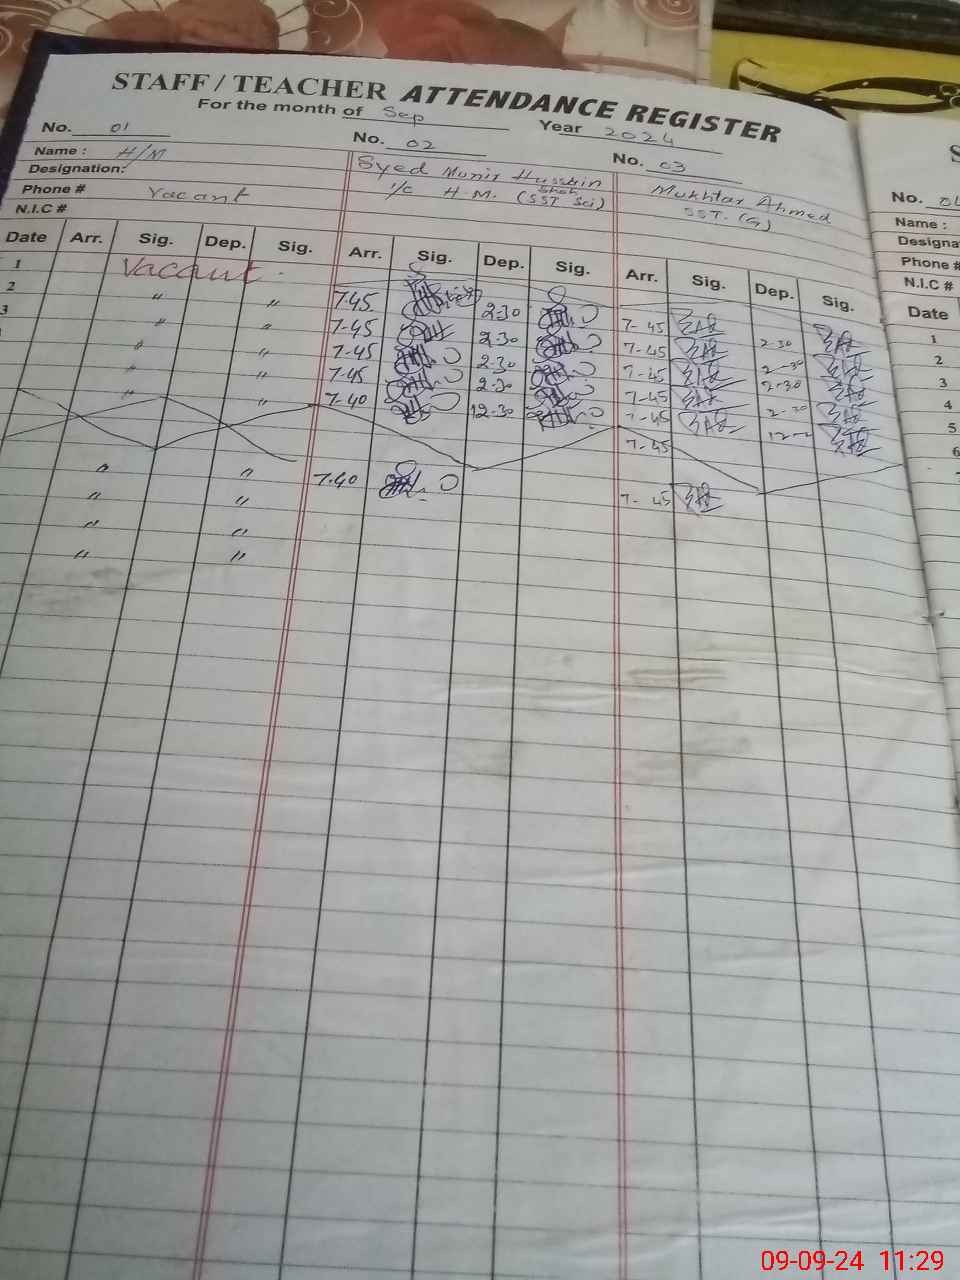 STAFF / TEACHER ATTENDANCE REGISTER
For the month of Sep Year 2024
No. 01 No. 02 No. 03 No.
Name : H/M Syed Munir Hussain Shah Mukhtar Ahmed Name :
Designation: I/C H.M. (SST Sci) SST. (G) Designa
Phone # Vacant Phone #
N.I.C # N.I.C #
Date Arr. Sig. Dep. Sig. Arr. Sig. Dep. Sig. Arr. Sig. Dep. Sig. Date
1 Vacant 1
2 " " 7-45 2-30 7-45 2-30 2
3 " " 7-45 2-30 7-45 2-30 3
" " 7-45 2-30 7-45 2-30 4
" " 7-45 2-30 7-45 2-30 5
" " 7-40 12-30 7-45 6
7-45
" " 7-40 7-45
" "
" "
" "
09-09-24 11:29